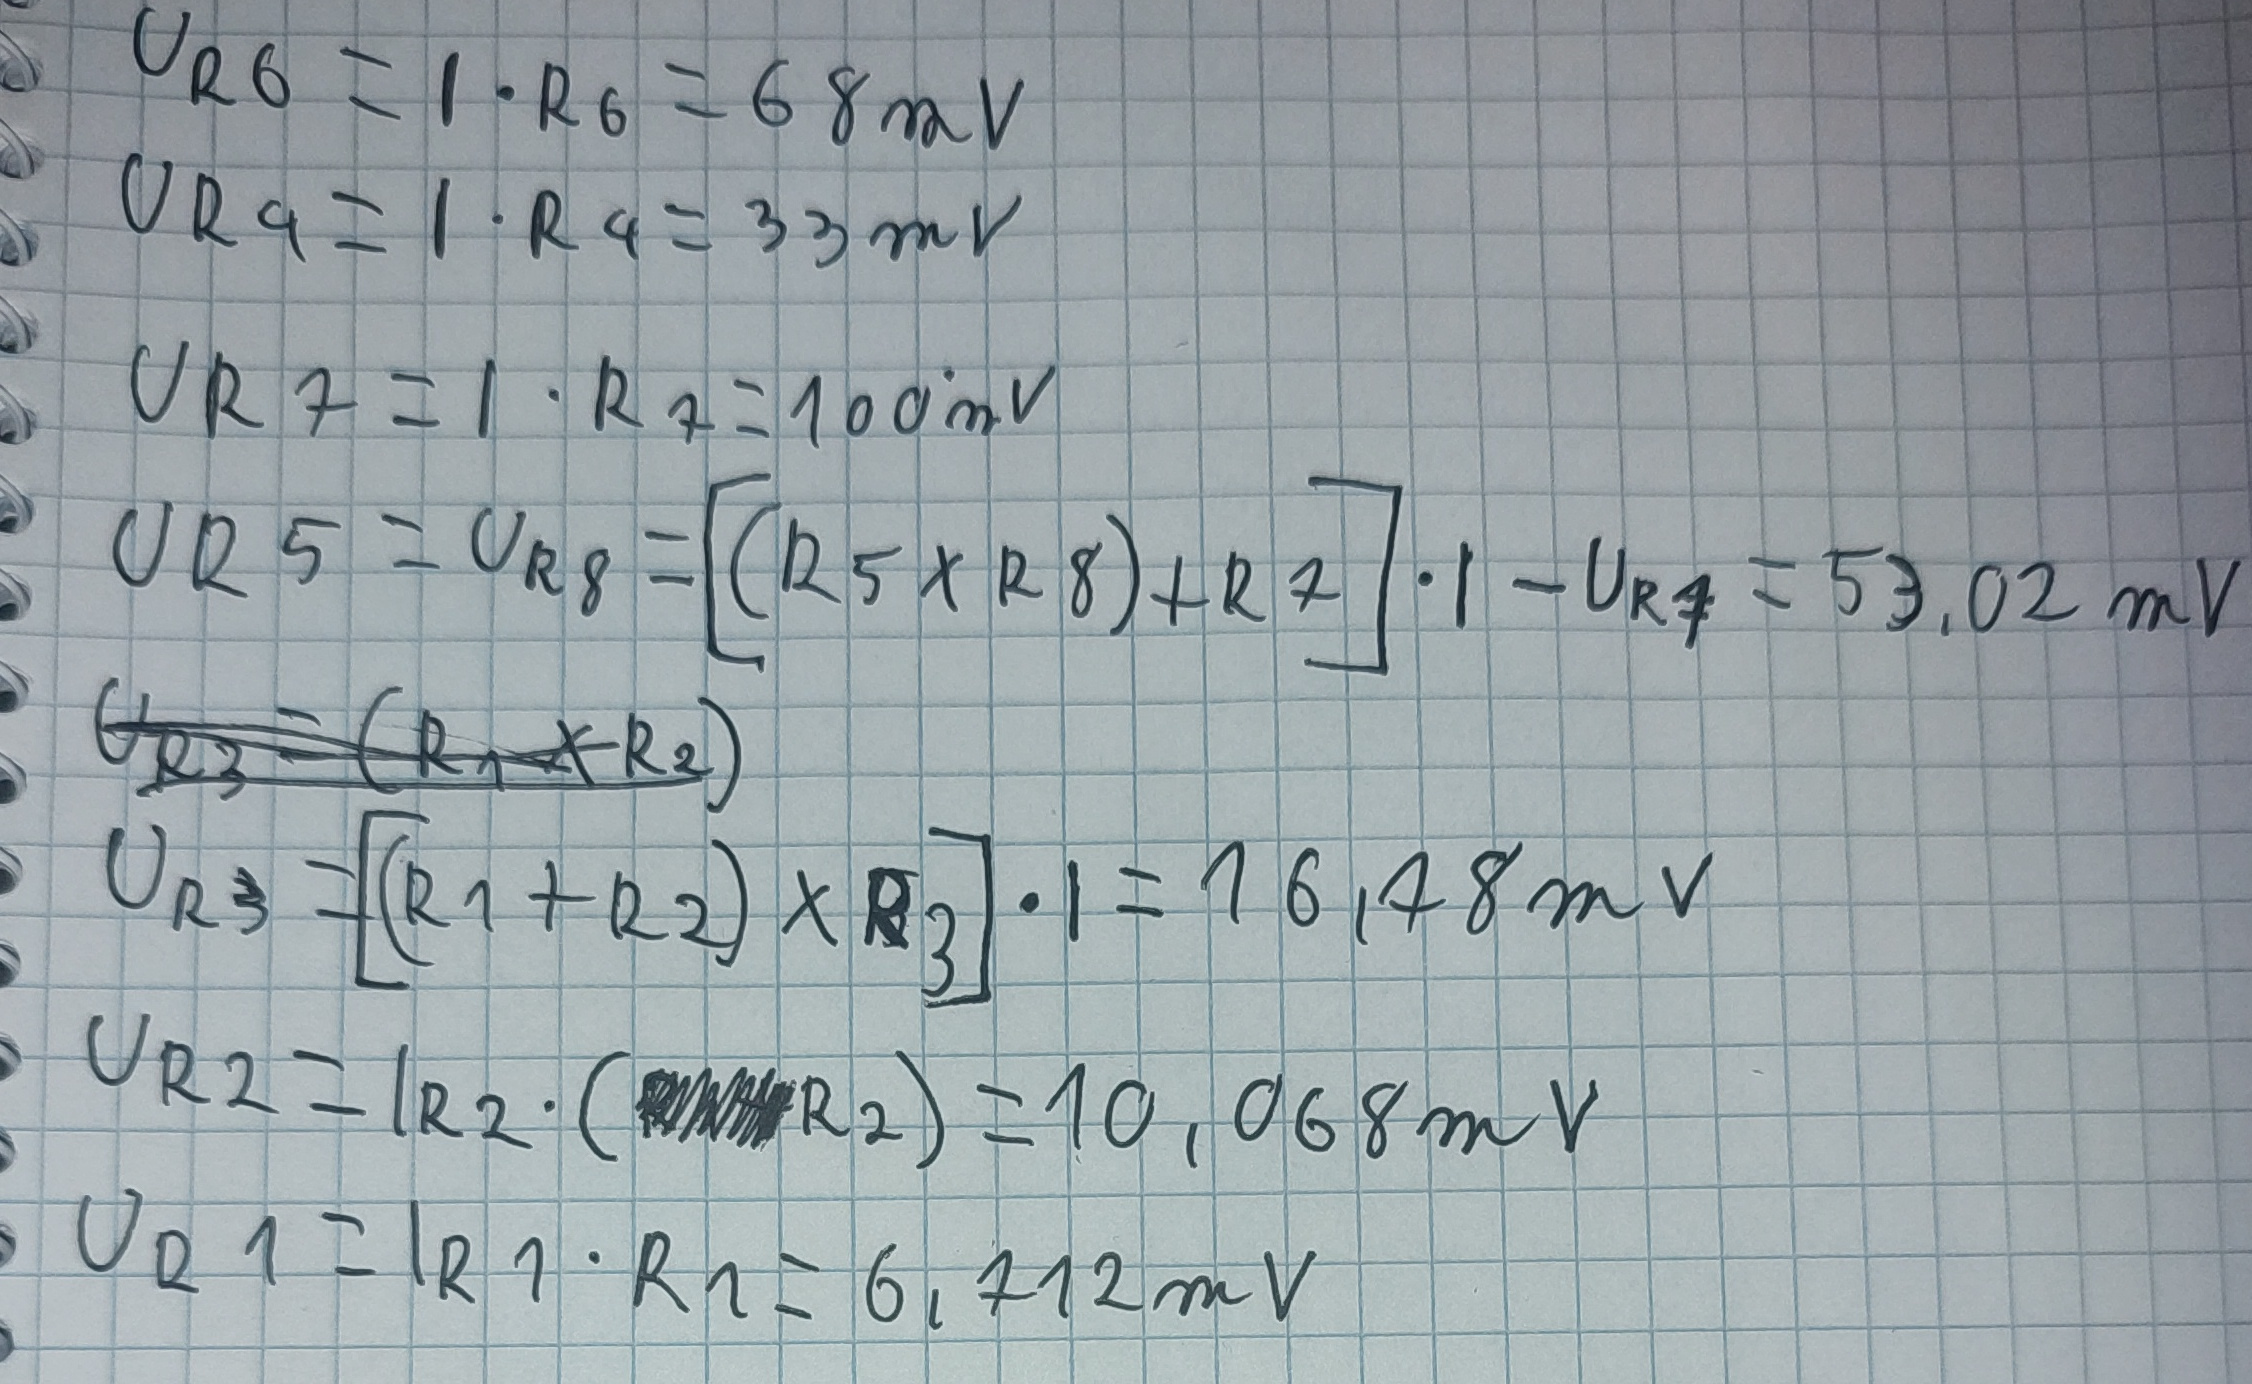 UR6 = I · R6 = 68 mV
UR4 = I · R4 = 33 mV
UR7 = I · R7 = 100 mV
UR5 = UR8 = [(R5 x R8) + R7] · I - UR7 = 53,02 mV
UR3 = (R1 x R2)
UR3 = [(R1 + R2) x R3] · I = 16,78 mV
UR2 = IR2 · (R2) = 10,068 mV
UR1 = IR1 · R1 = 6,712 mV